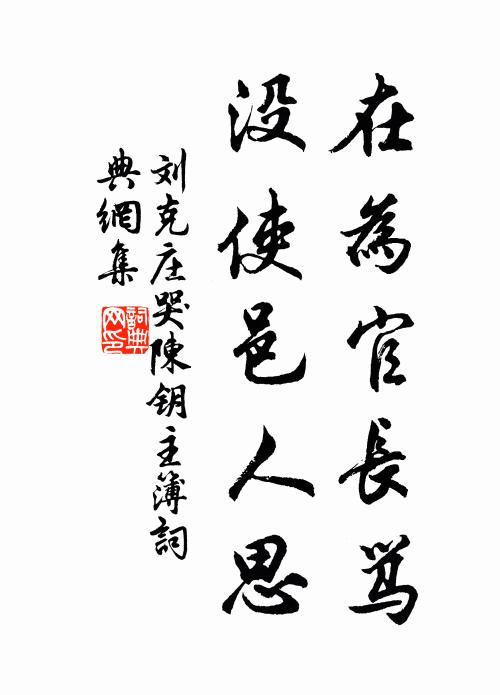 在為官長骂
没使邑人思
刘克庄哭陳钥主簿詞
典網集
詞典
网印